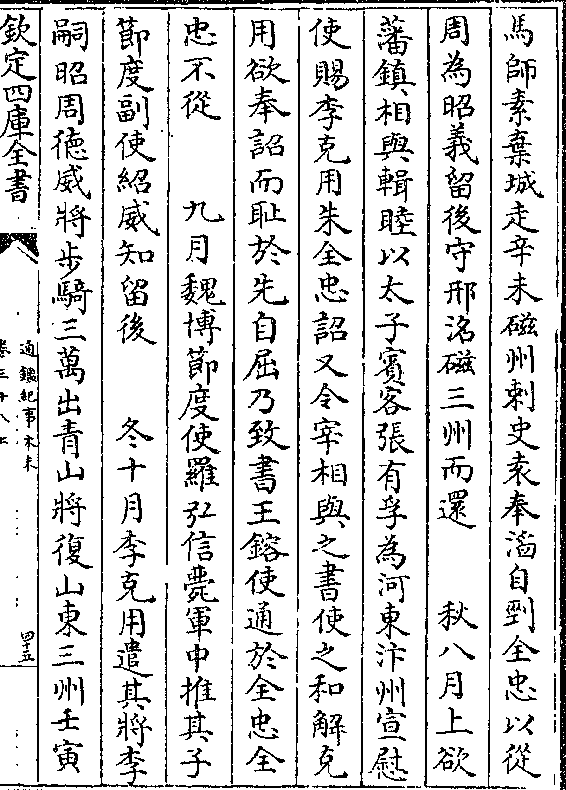 馬師素棄城走辛未磁州刺史袁奉滔自剄全忠以從
周為昭義留後守邢洺磁三州而還　　秋八月上欲
藩鎮相與輯睦以太子賓客張有孚為河東汴州宣慰
使賜李克用朱全忠詔又令宰相與之書使之和解克
用欲奉詔而恥於先自屈乃致書王鎔使通於全忠全
忠不從　　九月魏博節度使羅弘信薨軍中推其子
節度副使紹威知留後　　冬十月李克用遣其將李
嗣昭周德威將步騎三萬出青山將復山東三州壬寅
欽定四庫全書
通鑑紀事本末
卷三十八上
四十五